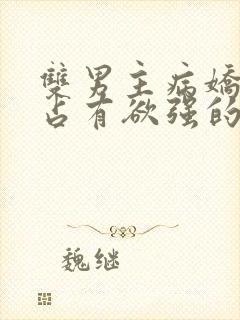 雙男主病嬌
占有欲强的
魏继